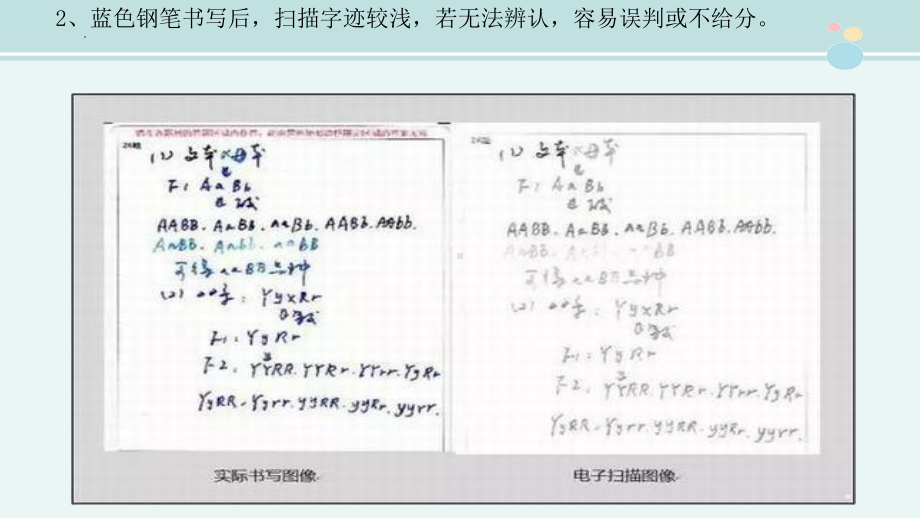 2、蓝色钢笔书写后，扫描字迹较浅，若无法辨认，容易误判或不给分。
(1) 父本×母本
F1 AaBb
AABB. AaBB. aaBb. AABb. AAbb.
AaBB. AaBb. aaBB
可得aaBB品种
(2) YyxRr
F1: YyRr
F2: YYRR. YYRr. YYrr. YyRr
YyRR. Yyrr. yyRR. yyRr. yyrr.
(1) 父本×母本
F1 AaBb
AABB. AaBB. aaBb. AABb. AAbb.
AaBB. aaBB
可得aaBB品种
(2) YyxRr
F1: YyRr
F2: YYRR. YYRr. YYrr. YyRr
YyRR. Yyrr. yyRR. yyRr. yyrr.
实际书写图像
电子扫描图像